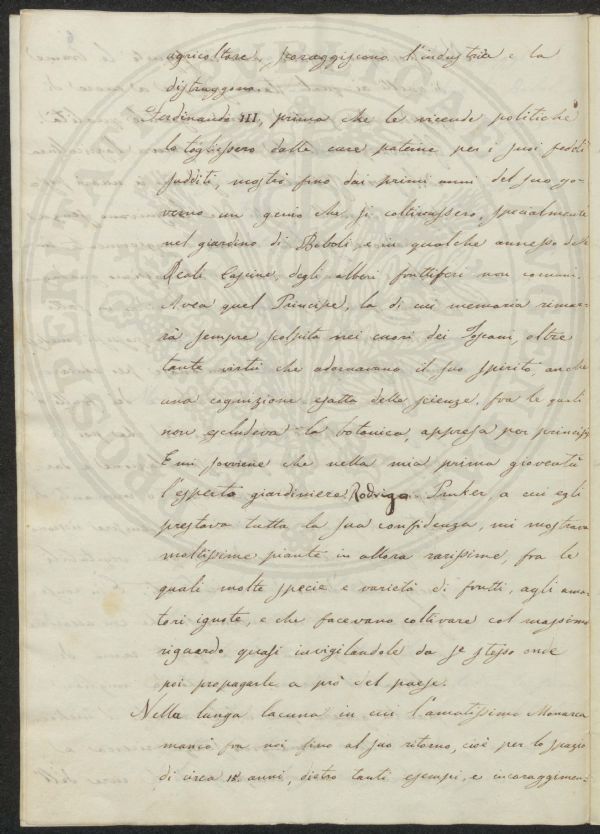 agricoltore, scoraggiscono l'industria e la
distraggono.
Ferdinando III, prima che le vicende politiche
lo togliessero dalle cure paterne per i suoi fedeli
sudditi, mostrò fino dai primi anni del suo go-
verno un genio che si coltivassero, specialmente
nel giardino di Boboli, e in qualche annesso delle
Reali Cascine, degli alberi fruttiferi non comuni.
Avea quel Principe, la di cui memoria rimar-
rà sempre scolpita nei cuori dei Toscani, oltre
tante virtù che adornavano il suo spirito, anche
una cognizione esatta delle scienze, fra le quali
non escludeva la botanica, appresa per principj.
E mi sovviene che nella mia prima gioventù
l'esperto giardiniere Rodrigo Pruker, a cui egli
prestava tutta la sua confidenza, mi mostrava
moltissime piante in allora rarissime, fra le
quali molte specie e varietà di frutti, agli ama-
tori ignote, e che facevano coltivare col massimo
riguardo quasi invigilandole da se stesso onde
poi propagarle a prò del paese.
Nella lunga lacuna in cui l'amatissimo Monarca
mancò fra noi fino al suo ritorno, cioè per lo spazio
di circa 15 anni, dietro tanti esempi, e incoraggimen-